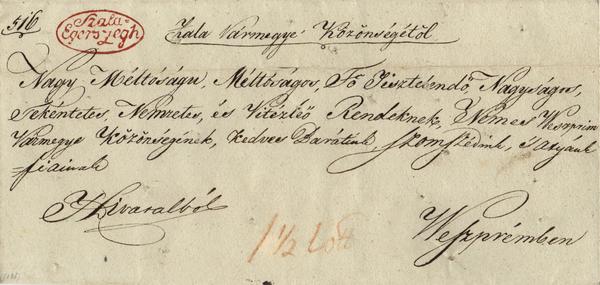 516
Szala-
Egerszegh
Zala Vármegye Közönségétől
Nagy Méltóságu, Méltóságos, Fő Tisztelendő, Nagyságos,
Tekéntetes, Nemzetes, és Vitézlő Rendeknek, Nemes Veszprim
Vármegye Közönségének, kedves Barátink, szomszédink, 's atyánk
=fiainak
Hivatalból
1 1/2 Lott
Weszprémben